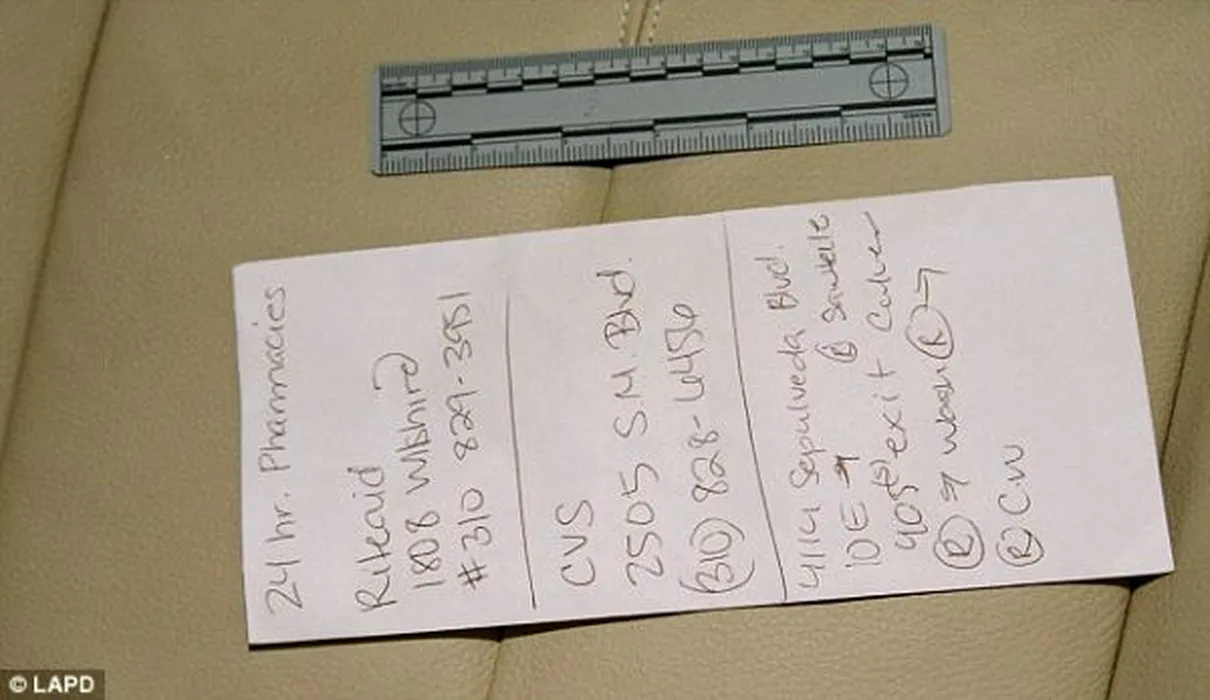 24 hr. Pharmacies
Riteaid
1808 Wilshire
#310 829-3951
CVS
2505 S.M. Blvd.
(310) 828-6456
4114 Sepulveda Blvd.
10E → R Sawtelle
405(S) exit Culver
R → wash R →
R CW
© LAPD